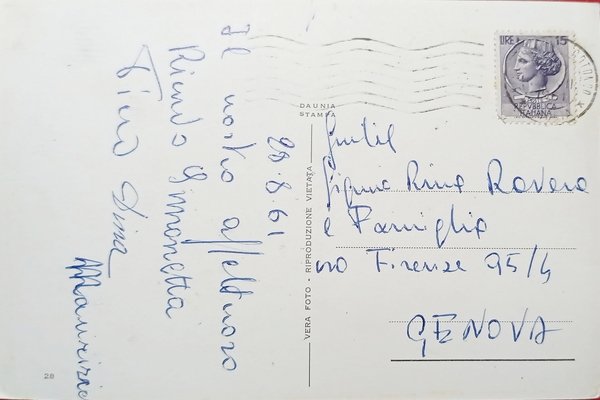 Il nostro affettuoso
Ricordo Simonetta
Piero Dina
Maurizio
28.8.61
DAUNIA
STAMPA
VERA FOTO - RIPRODUZIONE VIETATA
28
LIRE 15
REPVBBLICA
ITALIANA
Gentil
Signora Rina Rovera
e Famiglia
via Firenze 95/4
GENOVA